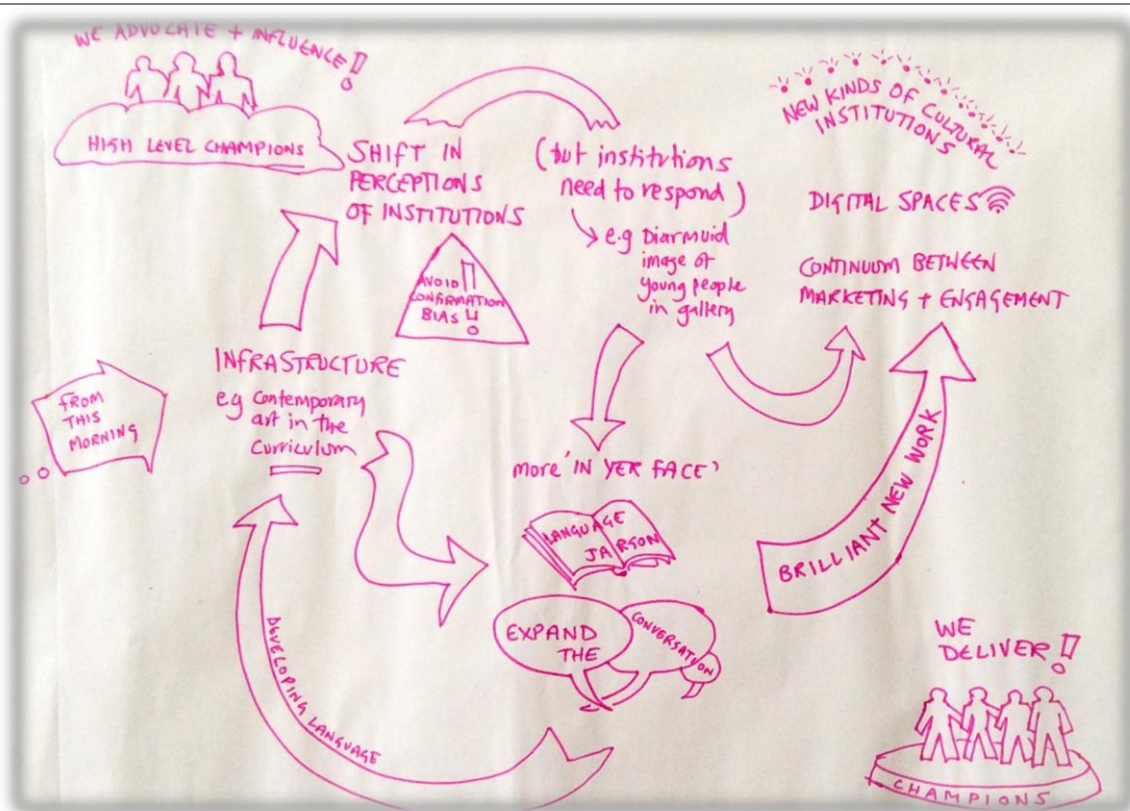 WE ADVOCATE + INFLUENCE!
HIGH LEVEL CHAMPIONS
SHIFT IN
PERCEPTIONS
OF INSTITUTIONS
(but institutions
need to respond)
e.g Diarmuid
image of
young people
in gallery
NEW KINDS OF CULTURAL
INSTITUTIONS
DIGITAL SPACES
CONTINUUM BETWEEN
MARKETING + ENGAGEMENT
AVOID
CONFIRMATION
BIAS!
FROM
THIS
MORNING
INFRASTRUCTURE
eg Contemporary
art in the
Curriculum
more 'IN YER FACE'
LANGUAGE
JARGON
EXPAND
THE
CONVERSATION
DEVELOPING LANGUAGE
BRILLIANT NEW WORK
WE
DELIVER!
CHAMPIONS